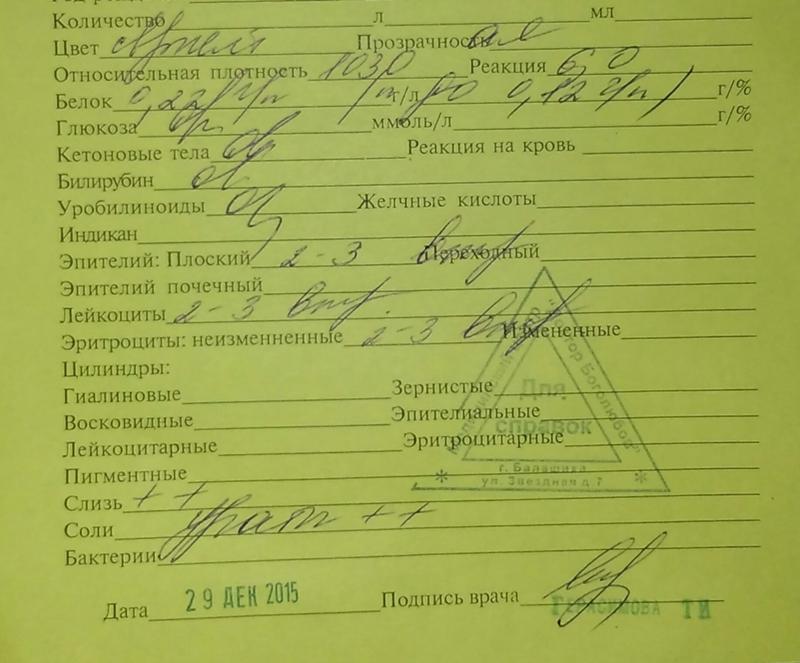 Количество л мл
Цвет Прозрачность
Относительная плотность 1030 Реакция 6,0
Белок 0,22 г/л г/л 0,12 г/л) г/%
Глюкоза ммоль/л г/%
Кетоновые тела Реакция на кровь
Билирубин
Уробилиноиды Желчные кислоты
Индикан
Эпителий: Плоский 2-3 Переходный
Эпителий почечный
Лейкоциты 2-3
Эритроциты: неизмненные 2-3 Измененные
Цилиндры:
Гиалиновые Зернистые
Восковидные Эпителиальные
Лейкоцитарные Эритроцитарные
Пигментные
Слизь ++
Соли ураты ++
Бактерии
Для
справок
г. Балашиха
ул. Звездная д.7
Дата 29 ДЕК 2015 Подпись врача
ГЕРАСИМОВА ТИ